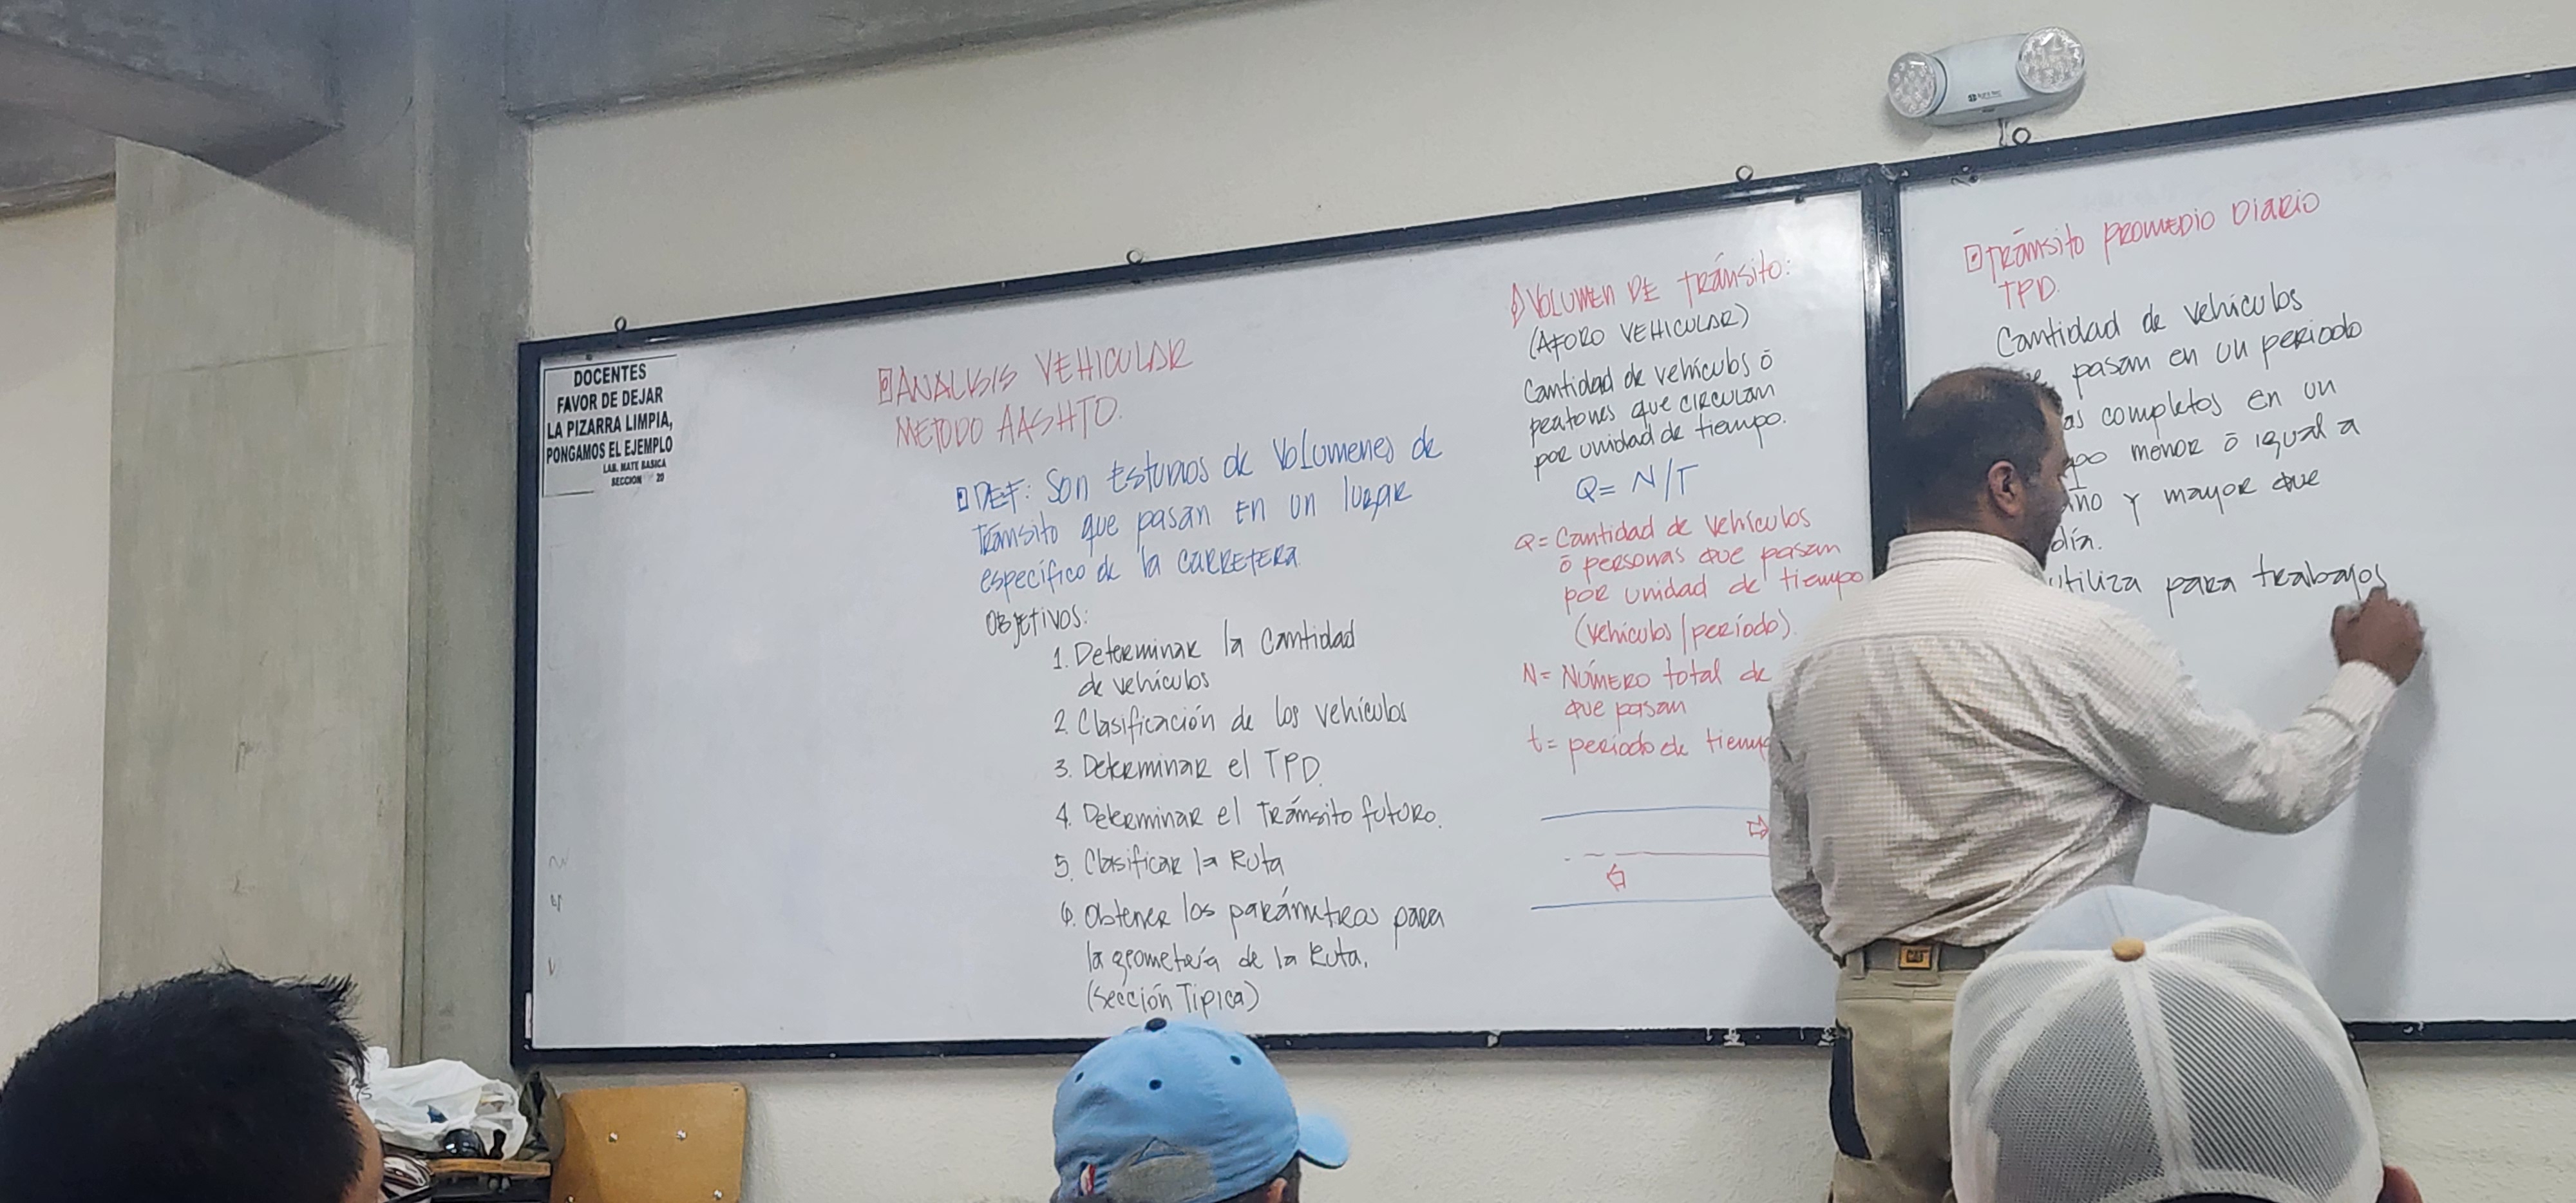 DOCENTES
FAVOR DE DEJAR
LA PIZARRA LIMPIA,
PONGAMOS EL EJEMPLO
LAB. MATE BASICA
SECCION 20
ANALISIS VEHICULAR
METODO AASHTO.
DEF: Son Estudios de Volumenes de
Tránsito que pasan en un lugar
específico de la carretera
OBJETIVOS:
1. Determinar la cantidad
de vehículos
2. Clasificación de los vehículos
3. Determinar el TPD.
4. Determinar el Tránsito futuro.
5. Clasificar la Ruta
6. Obtener los parámetros para
la geometría de la Ruta.
(Sección Tipica)
VOLUMEN DE tránsito:
(AFORO VEHICULAR)
Cantidad de vehículos ó
peatones que circulan
por unidad de tiempo.
Q= N/T
Q= Cantidad de vehículos
ó personas que pasan
por unidad de tiempo
(vehículos/período).
N= NÚMERO total de
que pasan
t= período de
Tránsito PROMEDIO DIARIO
TPD.
Cantidad de vehículos
pasan en un periodo
completos en un
menor ó igual a
y mayor que
día.
utiliza para trabajos
CAT